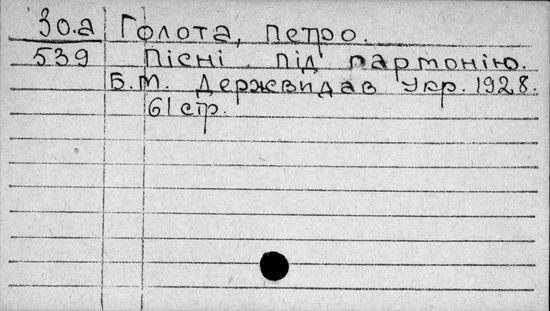 30.а Голота, Петро.
539 Пісні під гармонію.
Б.М. Держвидав Укр. 1928.
61 стр.